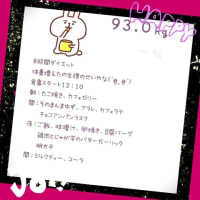 HAPPY
93.0kg
8時間ダイエット
体重増えたの生理のせいやな(´@_@`)
食事スタート12:10
朝:たこ焼き、カフェゼリー
間:そのまんまゆず、アラレ、カフェラテ
チョコアンパンラスク
夜:ご飯、味噌汁、卵焼き、豆腐バーグ
鶏肉とじゃが芋のバターガーリック
明太子
間:ミルクティー、コーラ
JOY!